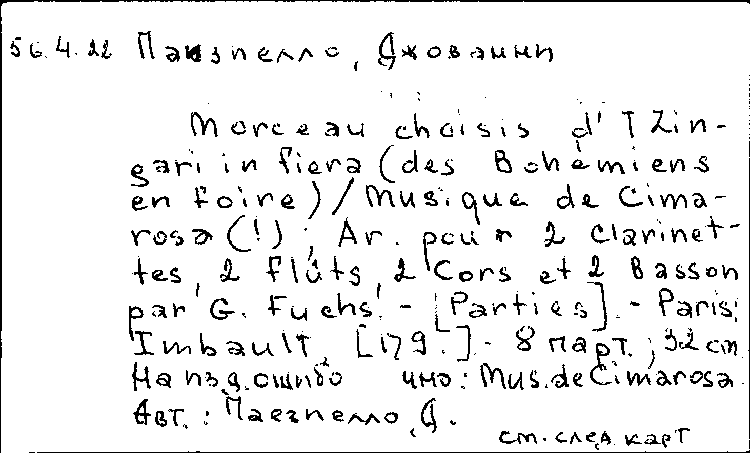 56.4.22 Паизпелло, Джованни
Morceau choisis d'I Zin-
gari in fiera (des Bohémiens
en foire) / Musique de Cima-
rosa (!) ; Ar. pour 2 clarinet-
tes, 2 flûts, 2 Cors et 2 Basson
par G. Fuchs. - [Parties]. - Paris:
Imbault, [179.]. - 8 парт. ; 32 cm
На изд. ошибо чно: Mus. de Cimarosa.
Авт.: Паезпелло, Д.
см. след карт